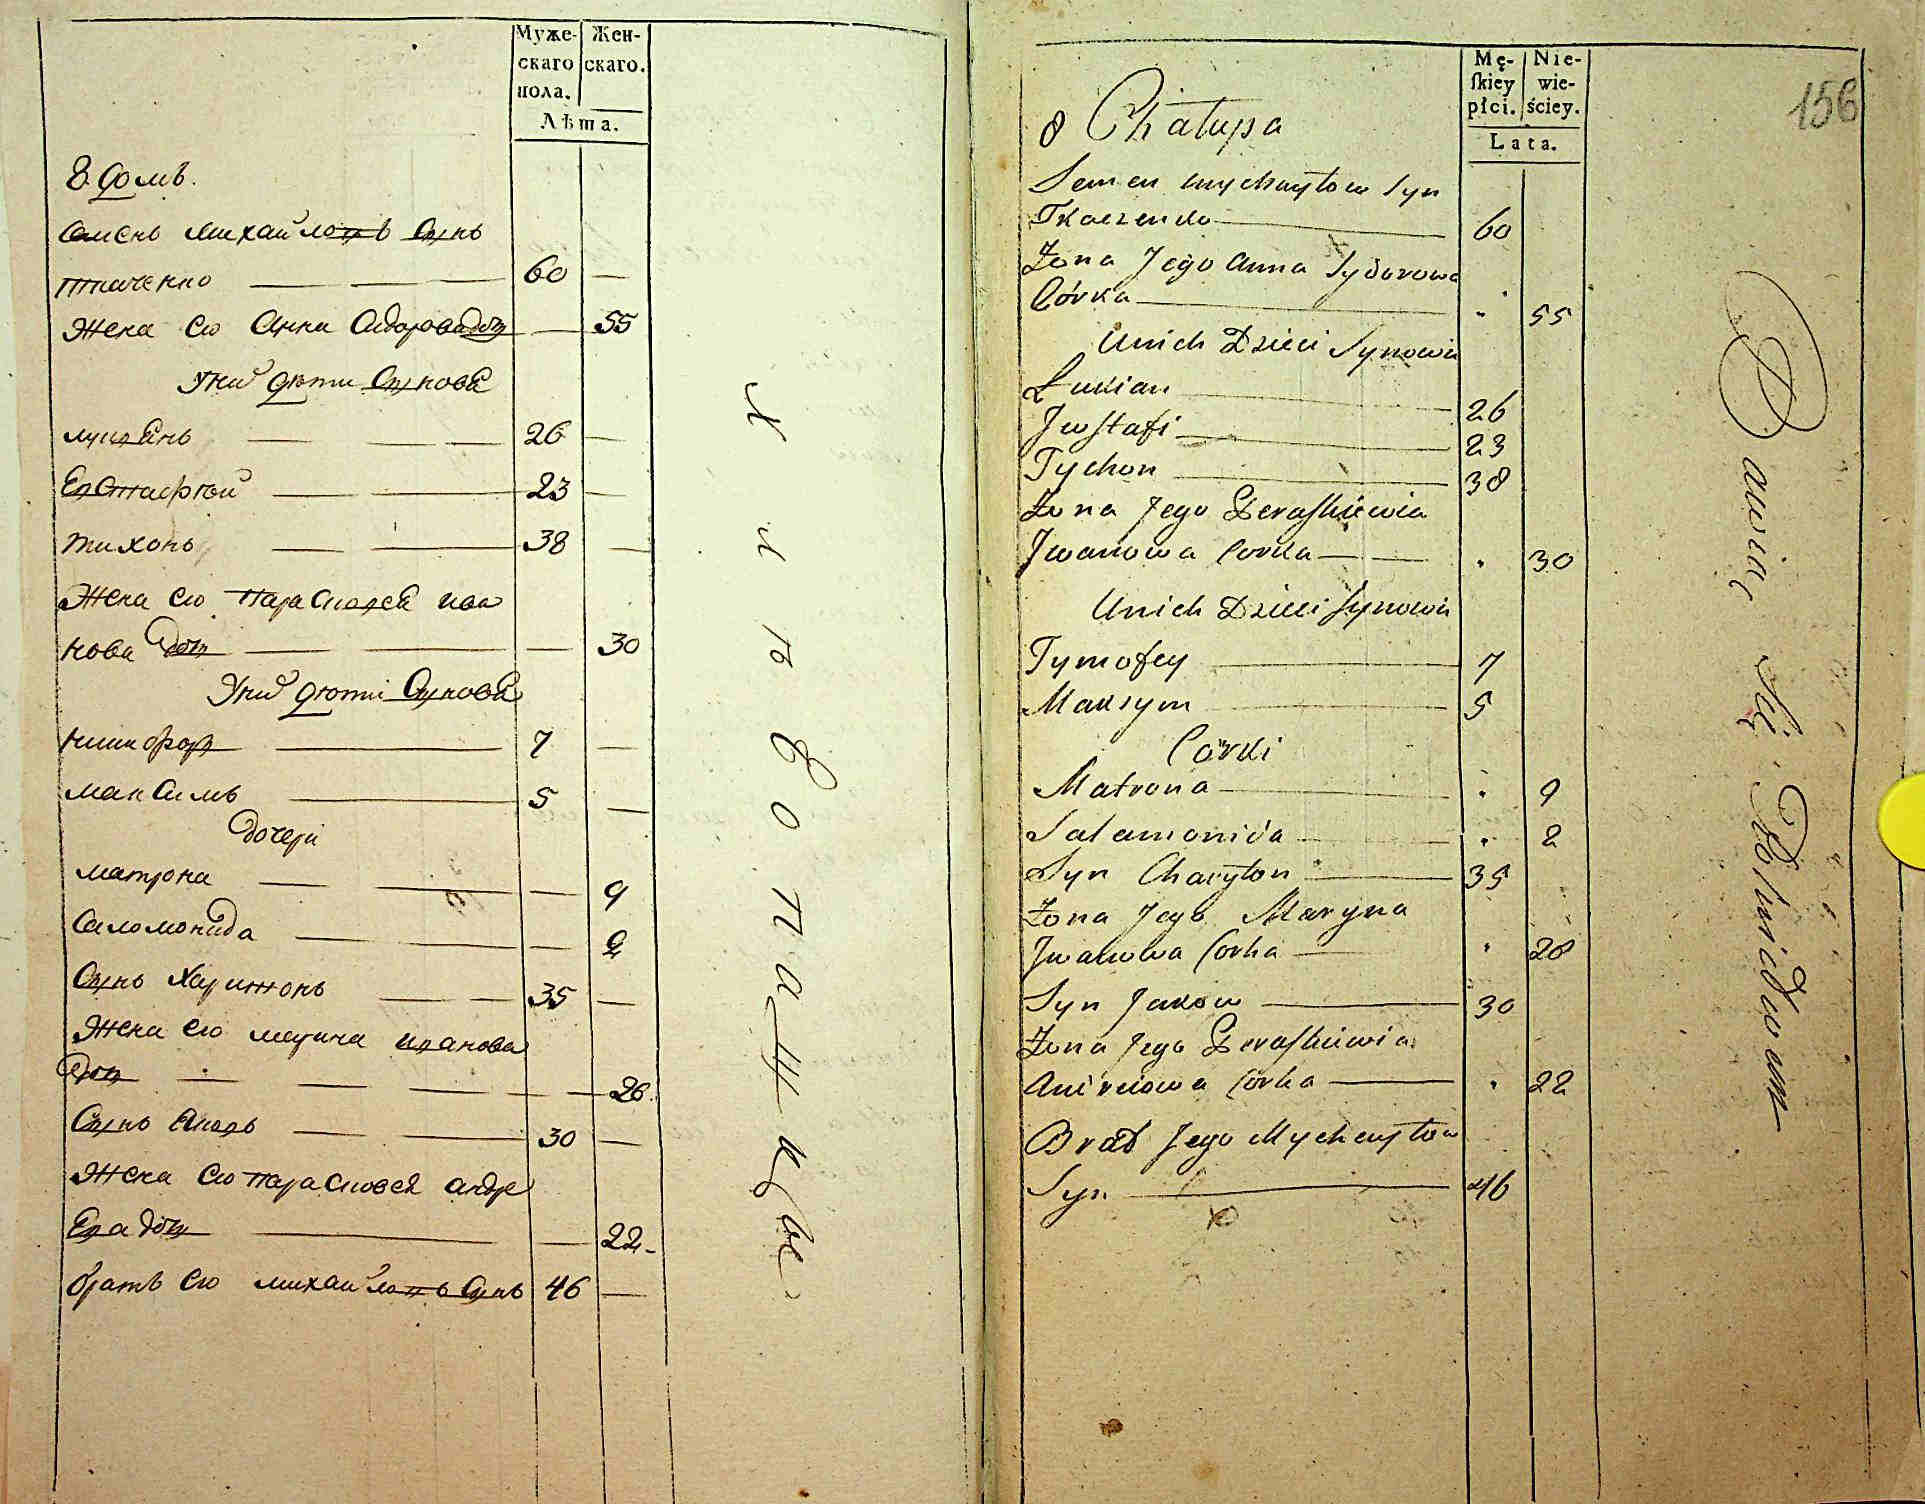 Муже-
скаго
пола.
Жен-
скаго.
Лѣта.
8 домъ.
Семенъ михайловъ Сынъ
ткаченко 60
Жена его Анна Сидорова доч 55
У них дѣти Сынове
лукіянъ 26
Евстафий 23
тихонъ 38
Жена его Парасковея ива
нова доч 30
У них дѣти Сынове
никифоръ 7
максимъ 5
дочери
матрона 9
Саломонида 2
Сынъ Харитонъ 35
Жена его марина иванова
доч 28
Сынъ Яковъ 30
Жена его парасковея андре
Ева доч 22
братъ его михайловъ Сынъ 46
живопашцы
156
Mę-
skiey
płci.
Nie-
wie-
ściey.
Lata.
8 Chałupa
Semen Mychayłow Syn
Tkaczenko 60
Żona Jego Anna Sydorowa
Córka 55
U nich Dzieci Synowie
Łukian 26
Jwstafi 23
Tychon 38
Żona Jego Peraskiewia
Jwanowa Corka 30
U nich Dzieci Synowie
Tymofey 7
Maksym 5
Córki
Matrona 9
Sałamonida 2
Syn Charyton 35
Żona Jego Maryna
Jwanowa Corka 28
Syn Jakow 30
Żona Jego Peraskiewia
Andreiowa Corka 22
Brat Jego Mychayłow
Syn 46
Bawią się Rolnictwem